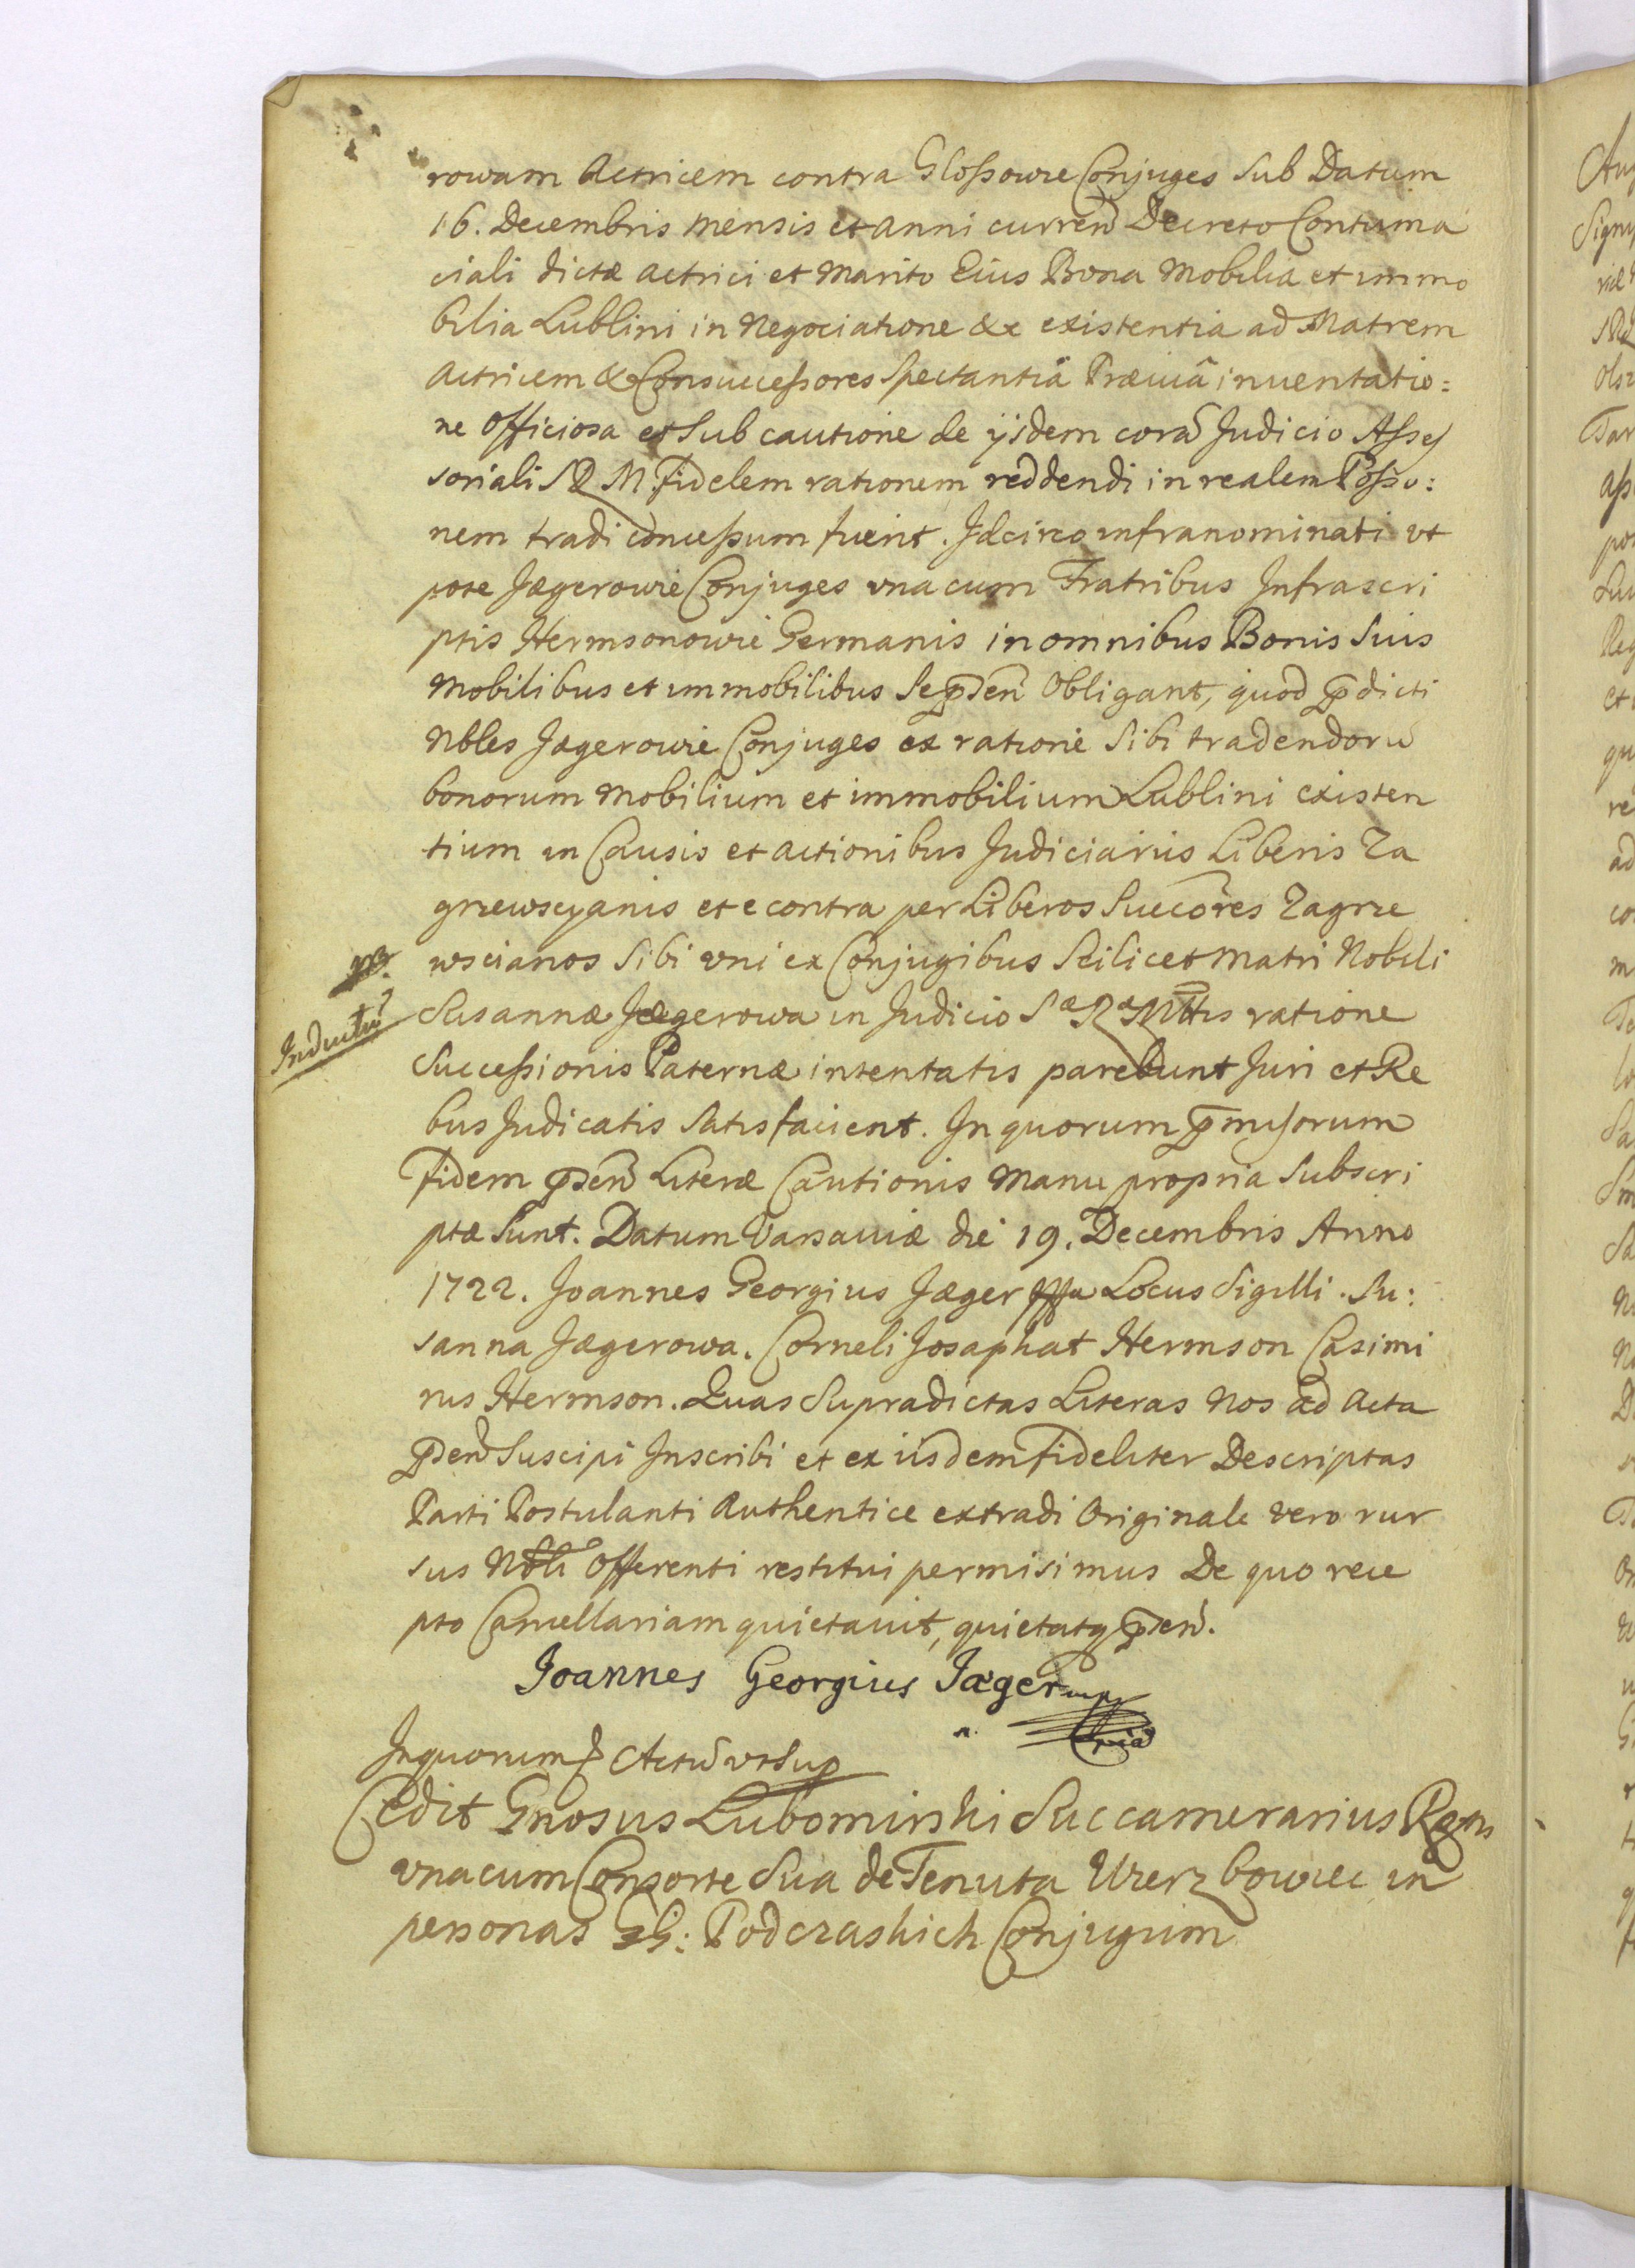 rowam Actricem contra Glossowie Conjuges Sub Datum
16. Decembris mensis et anni curren̄ Decreto Contuma
ciali dictæ actrici et Marito Eius Bona Mobilia et immo
bilia Lublini in Negociatione &c existentia ad Matrem
Actricem & Consuccessores Spectantia Præviâ inventatio:
ne Officiosa et Sub cautione de ijsdem corā Judicio Asses
soriali S R M. fidelem rationem reddendi in realem Possio:
nem tradi concessum fuerit. Idcirco infranominati ut
pote Jægerowie Conjuges vna cum Fratribus Infrascri
ptis Hermsonowie Germanis in omnibus Bonis Suis
Mobilibus et immobilibus Se p̄sen̄ Obligant, quod p̄dicti
Nbles Jægerowie Conjuges ex ratione Sibi tradendorū
bonorum Mobilium et immobilium Lublini existen
tium in Causis et actionibus Judiciariis Liberis Za
grzewscyanis et e contra per Liberos Succōres Zagrze
wscianos Sibi vni ex Conjugibus Scilicet Matri Nobili
Inductū
Susannæ Jægerowa in Judicio Sæ Ræ Mttis ratione
Successionis Paternæ intentatis parebunt Juri et Re
bus Judicatis Satisfacient. In quorum p̄misorum
fidem p̄sen̄ Literæ Cautionis Manu propria Subscri
ptæ Sunt. Datum Varsaviæ die 19. Decembris Anno
1722. Joannes Georgius Jæger Locus Sigilli. Su:
sanna Jægerowa. Corneli Josaphat Hermson Casimi
rus Hermson. Quas Supradictas Literas Nos ad Acta
p̄sen̄ Suscipi Inscribi et ex iisdem Fideliter Descriptas
Parti Postulanti Authentice extradi Originale vero rur
sus Nbli Offerenti restitui permisimus De quo rece
pto Cancellariam quietavit, quietatq p̄sen̄.
Joannes Georgius Jæger mpp
ria
In quorum & Actū ut Sup
Cedit Gnosus Lubomirski Succamerarius Regni
vna cum Consorte Sua de Tenuta Wierzbowiec in
personas GG: Podczaskich Conjugum